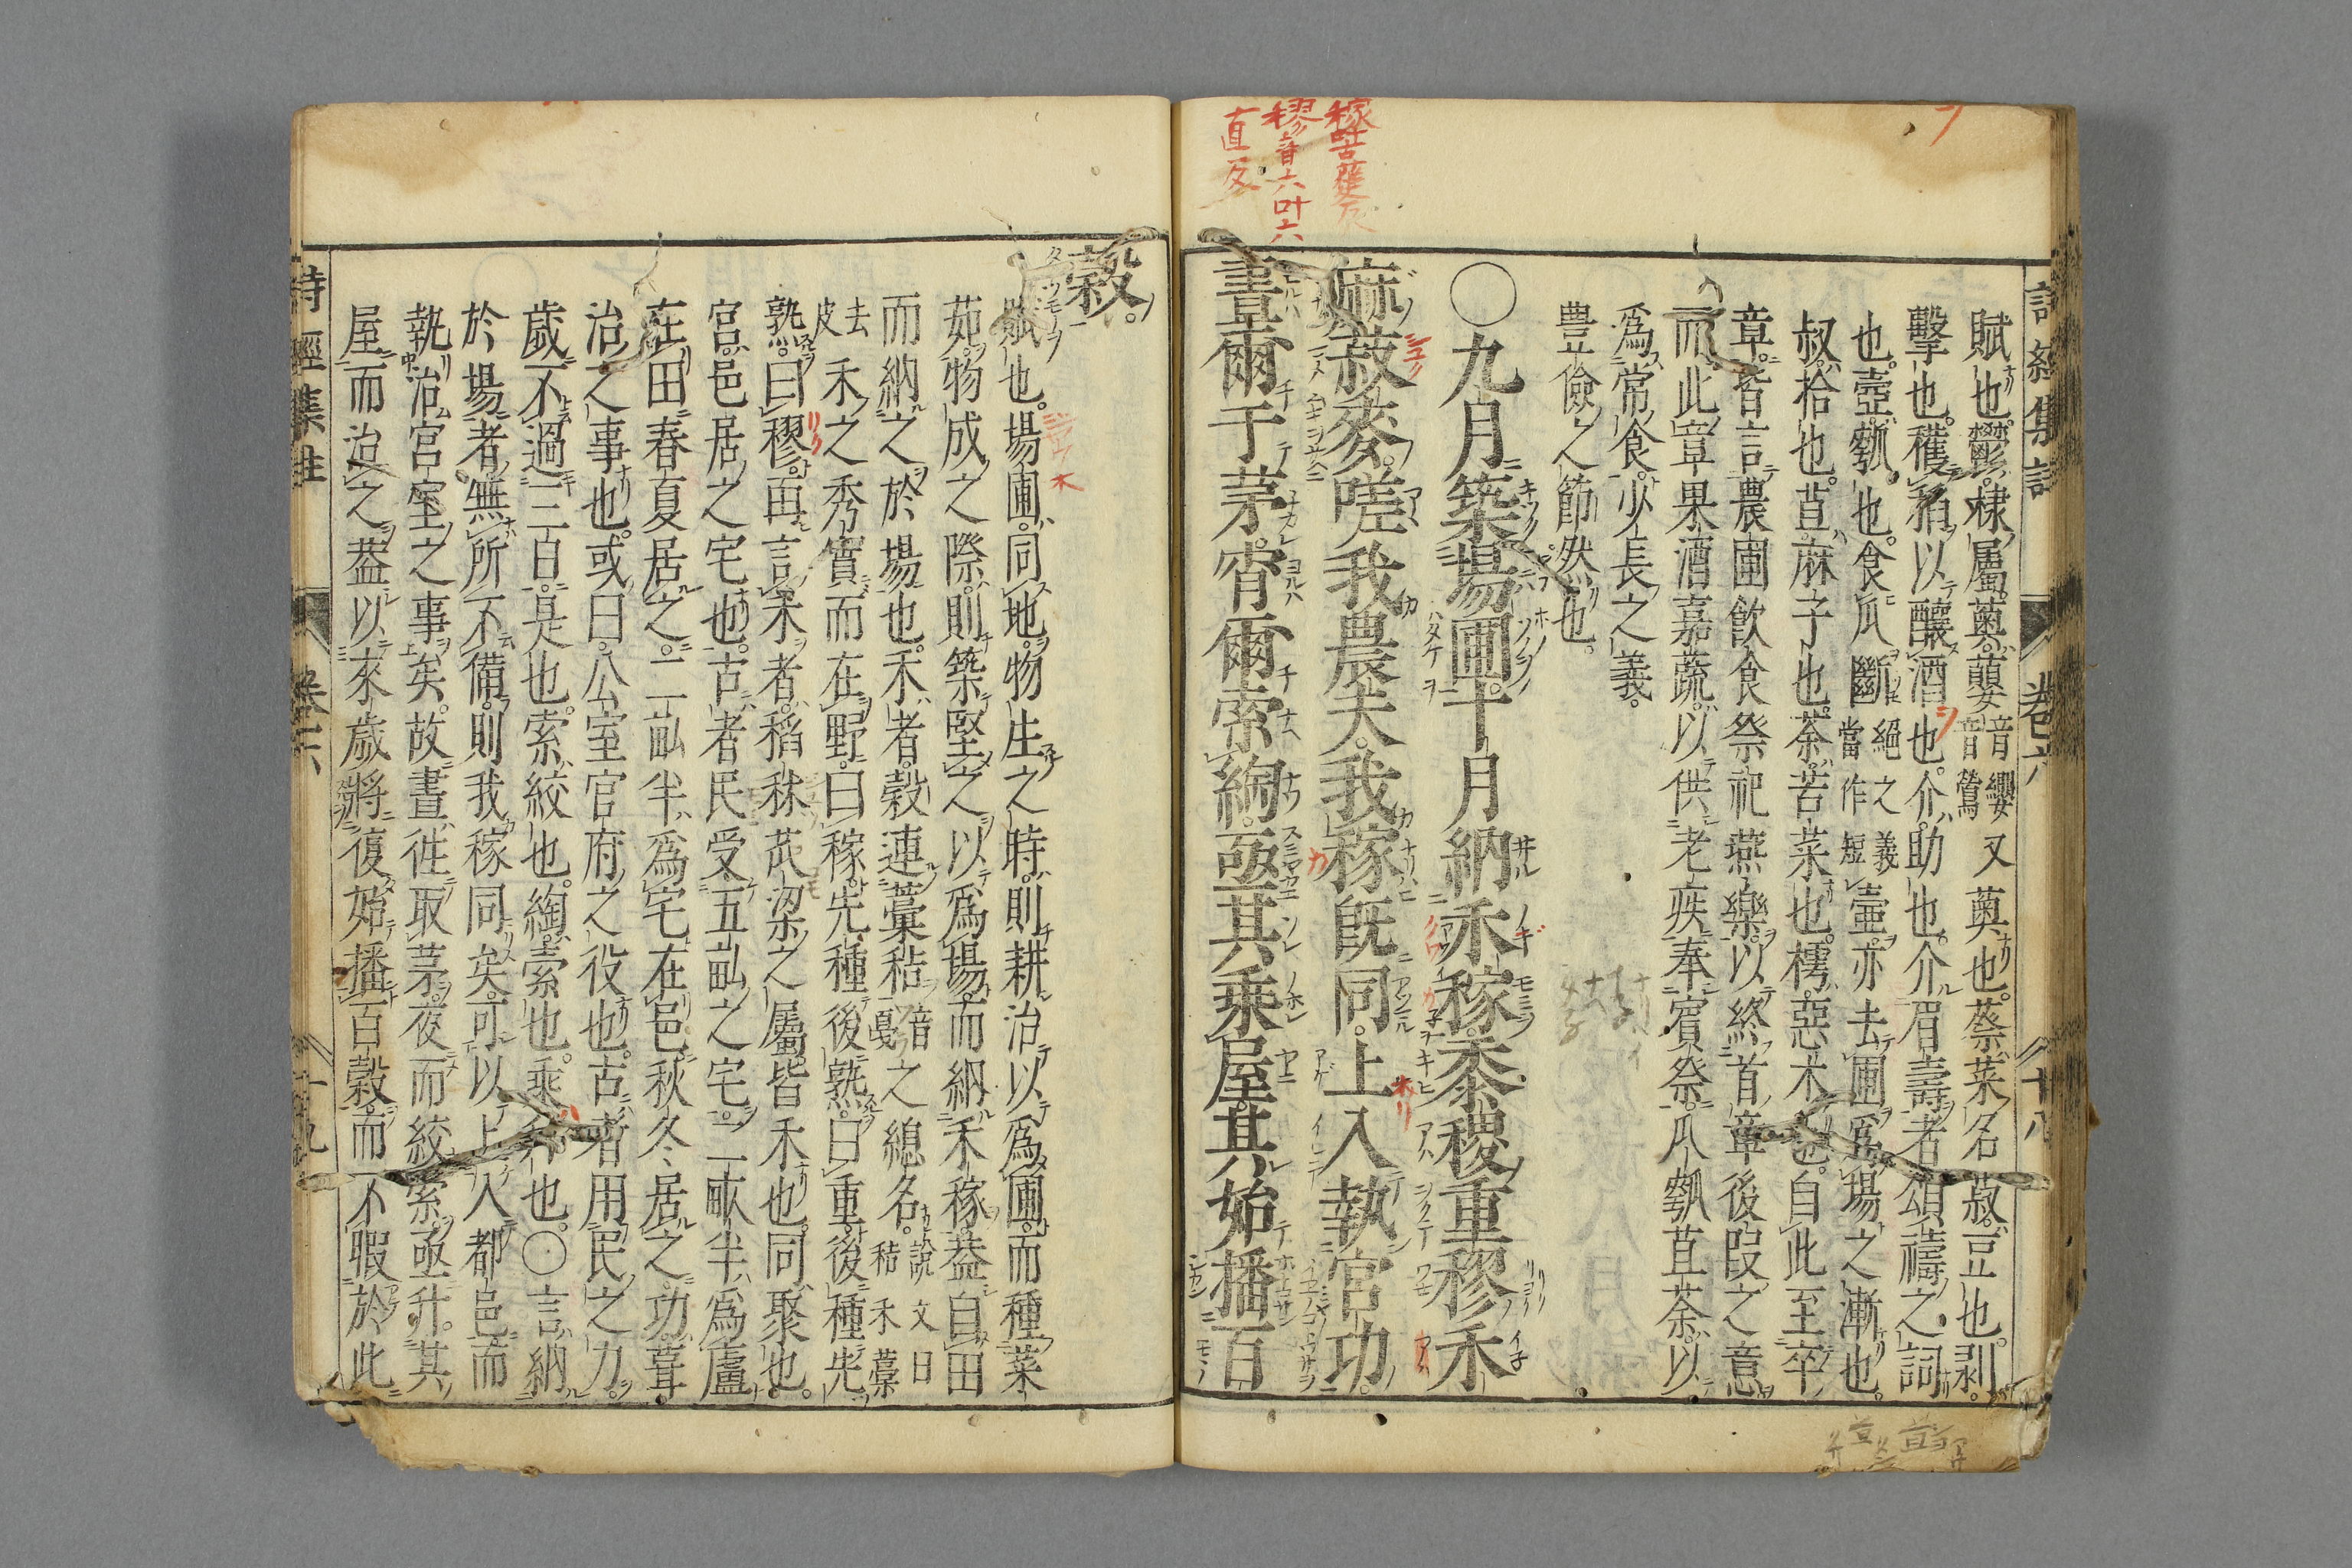 稼叶古護反
穋音六叶六
直反
詩經集註 卷六 十八
賦也。鬱。棣屬。薁。蘡音纓又音鶯薁也。葵。菜名。菽。豆也。剥。
擊也。穫稻以釀酒也。介。助也。介眉壽者。頌禱之詞
也。壺。瓠也。食瓜斷絕之義當作短壺。亦去圃爲場之漸也。
叔。拾也。苴。麻子也。荼。苦菜也。樗。惡木也。自此至卒
章。皆言農圃飲食祭祀燕樂。以終首章後段之意
而此章果酒嘉蔬。以供老疾奉賓祭。瓜瓠苴荼。以
爲常食。少長之義。
豊儉之節然也。
〇九月築場圃。十月納禾稼。黍稷重穋禾
麻菽麥。嗟我農夫。我稼既同。上入執宮功。
晝爾于茅。宵爾索綯。亟其乘屋。其始播百
穀。
賦也。場圃。同地。物生之時。則耕治以爲圃。而種菜
茹。物成之際。則築堅之以爲場。而納禾稼。蓋自田
而納之於場也。禾者。穀連藁秸音戛之總名。說文曰秸禾藁
去皮禾之秀實而在野曰稼。先種後熟曰重。後種先
熟曰穋。再言禾者。稻秫苽粱之屬。皆禾也。同。聚也。
宮。邑居之宅也。古者民受五畝之宅。二畝半爲廬
在田春夏居之。二畝半爲宅在邑秋冬居之。功。葺
治之事也。或曰。公室官府之役也。古者用民之力。
歲不過三日。是也。索。絞也。綯。索也。乘。升也。〇言納
於場者。無所不備。則我稼同矣。可以上入都邑而
執治宮室之事矣。故晝往取茅。夜而絞索。亟升其
屋而治之。蓋以來歲將復始播百穀。而不暇於此
詩經集註 卷六 十九